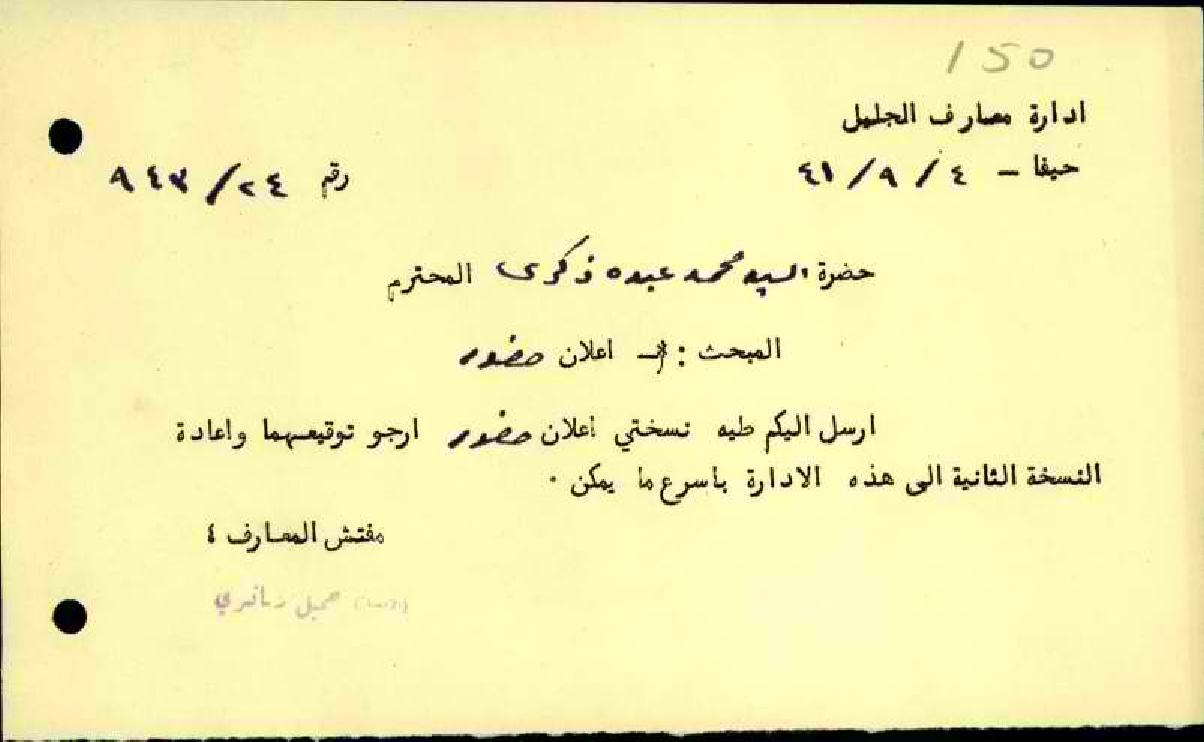 150
ادارة معارف الجليل
حيفا - ٤ / ٩ / ٤١ رقم ٢٤ / ٩٤٣
حضرة السيد محمد عبده زكرى المحترم
المبحث : اعلان حضور
ارسل اليكم طيه نسختي اعلان حضور ارجو توقيعهما واعادة
النسخة الثانية الى هذه الادارة باسرع ما يمكن .
مفتش المعارف ٤
جميل